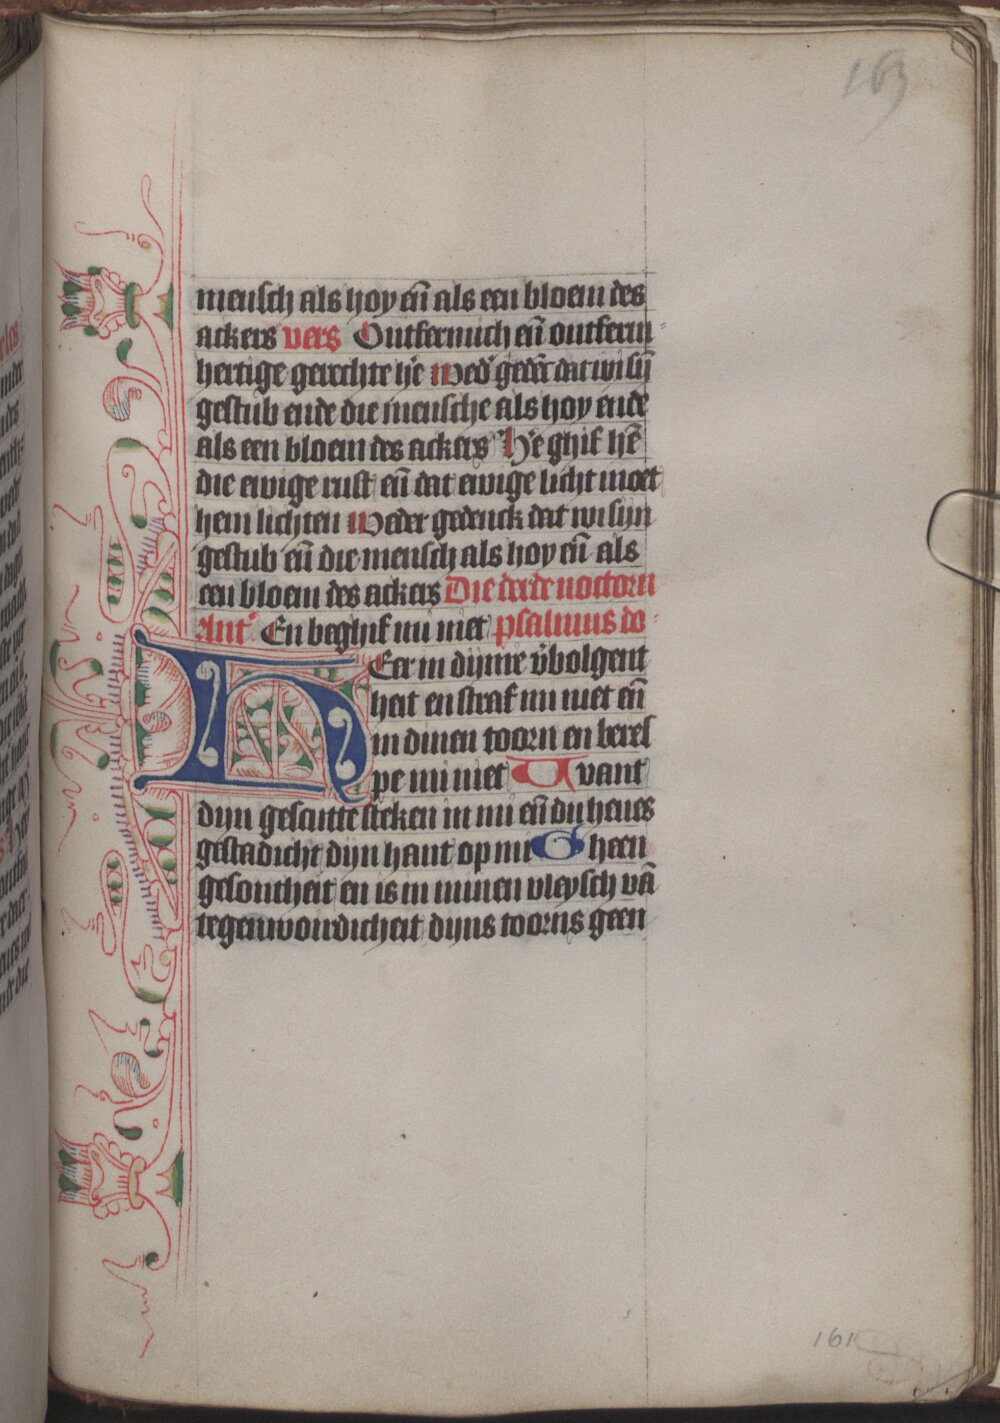 163
mensch als hoy eñ als een bloem des
ackers vers Ontfermich eñ ontferm
hertige gerechte h̄e Wed' gedēc dat wi sijn
gestub ende die mensche als hoy ende
als een bloem des ackers H̄e ghif hē
die ewige rust eñ dat ewige licht moet
hem lichten Weder gedenck dat wi sijn
gestub eñ die mensch als hoy eñ als
een bloem des ackers Die derde noctorn
Ant' En beghif mi niet psalmus do
HEer in dijnre v̄bolgent
heit en straf mi niet eñ
in dinen toorn en beres
pe mi niet Want
dijn gescutte steken in mi eñ du heues
gestadicht dijn hant op mi Gheen
gesontheit en is in minen vleysch vā
tegenwordicheit dijns toorns geen
161